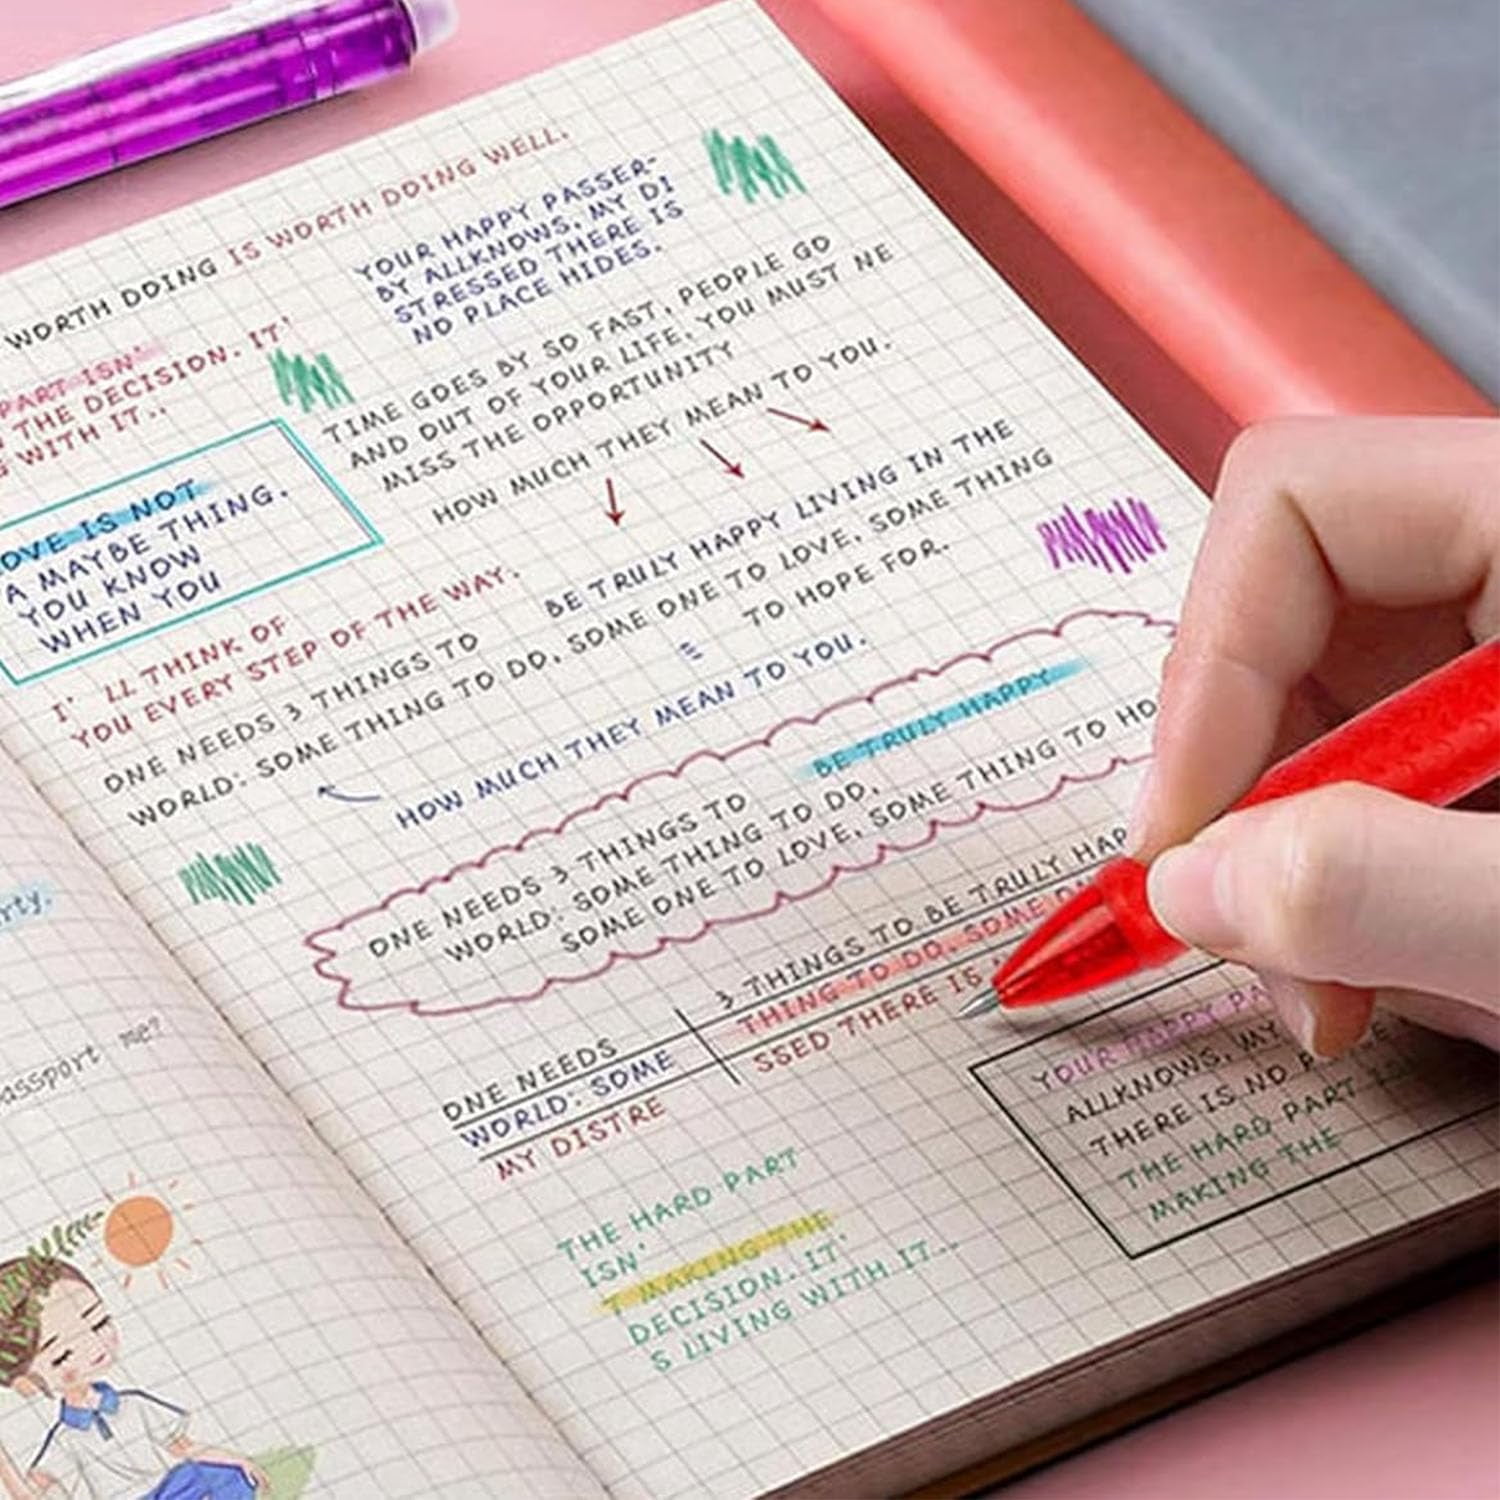 WORTH DOING IS WORTH DOING WELL.
YOUR HAPPY PASSER-
BY ALLKNOWS, MY DI
STRESSED THERE IS
NO PLACE HIDES.
PART ISN'
THE DECISION. IT'
WITH IT..
TIME GOES BY SO FAST, PEOPLE GO
AND OUT OF YOUR LIFE. YOU MUST NE
MISS THE OPPORTUNITY
HOW MUCH THEY MEAN TO YOU.
OVE IS NOT
A MAYBE THING.
YOU KNOW
WHEN YOU
I' LL THINK OF
YOU EVERY STEP OF THE WAY.
ONE NEEDS 3 THINGS TO BE TRULY HAPPY LIVING IN THE
WORLD: SOME THING TO DO, SOME ONE TO LOVE, SOME THING
TO HOPE FOR.
HOW MUCH THEY MEAN TO YOU.
ONE NEEDS 3 THINGS TO BE TRULY HAPPY
WORLD: SOME THING TO DO,
SOME ONE TO LOVE, SOME THING TO HO
ONE NEEDS 3 THINGS TO BE TRULY HAP
WORLD: SOME THING TO DO, SOME
MY DISTRE SSED THERE IS
YOUR HAPPY PA
ALLKNOWS, MY
THERE IS NO
THE HARD PART
MAKING THE
THE HARD PART
ISN'
T MAKING THE
DECISION. IT'
S LIVING WITH IT..
rty.
assport me?